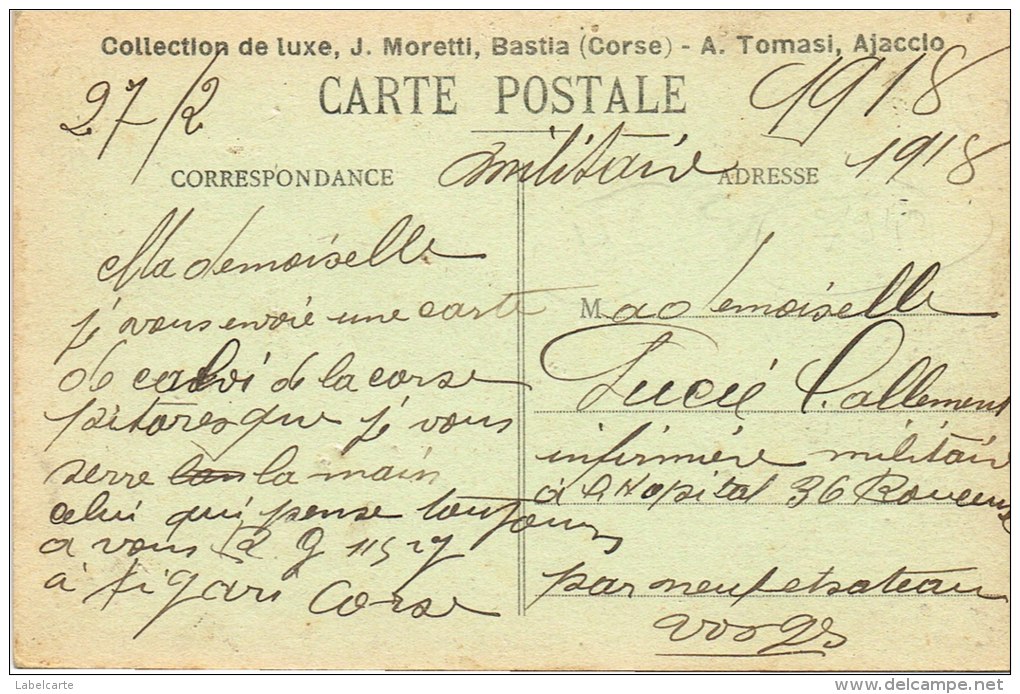 Collection de luxe, J. Moretti, Bastia (Corse) - A. Tomasi, Ajaccio
CARTE POSTALE
27/2 1918
militaire 1918
CORRESPONDANCE
ADRESSE
Mademoiselle
je vous envoie une carte
de calvi de la corse
pitoresque je vous
serre la main
celui qui pense toujours
a vous
à figari Corse
Mademoiselle
Lucie Lallement
infirmière militaire
à l'Hopital 36 Rouceux
par neufchateau
vosges
Labelcarte
www.delcampe.net